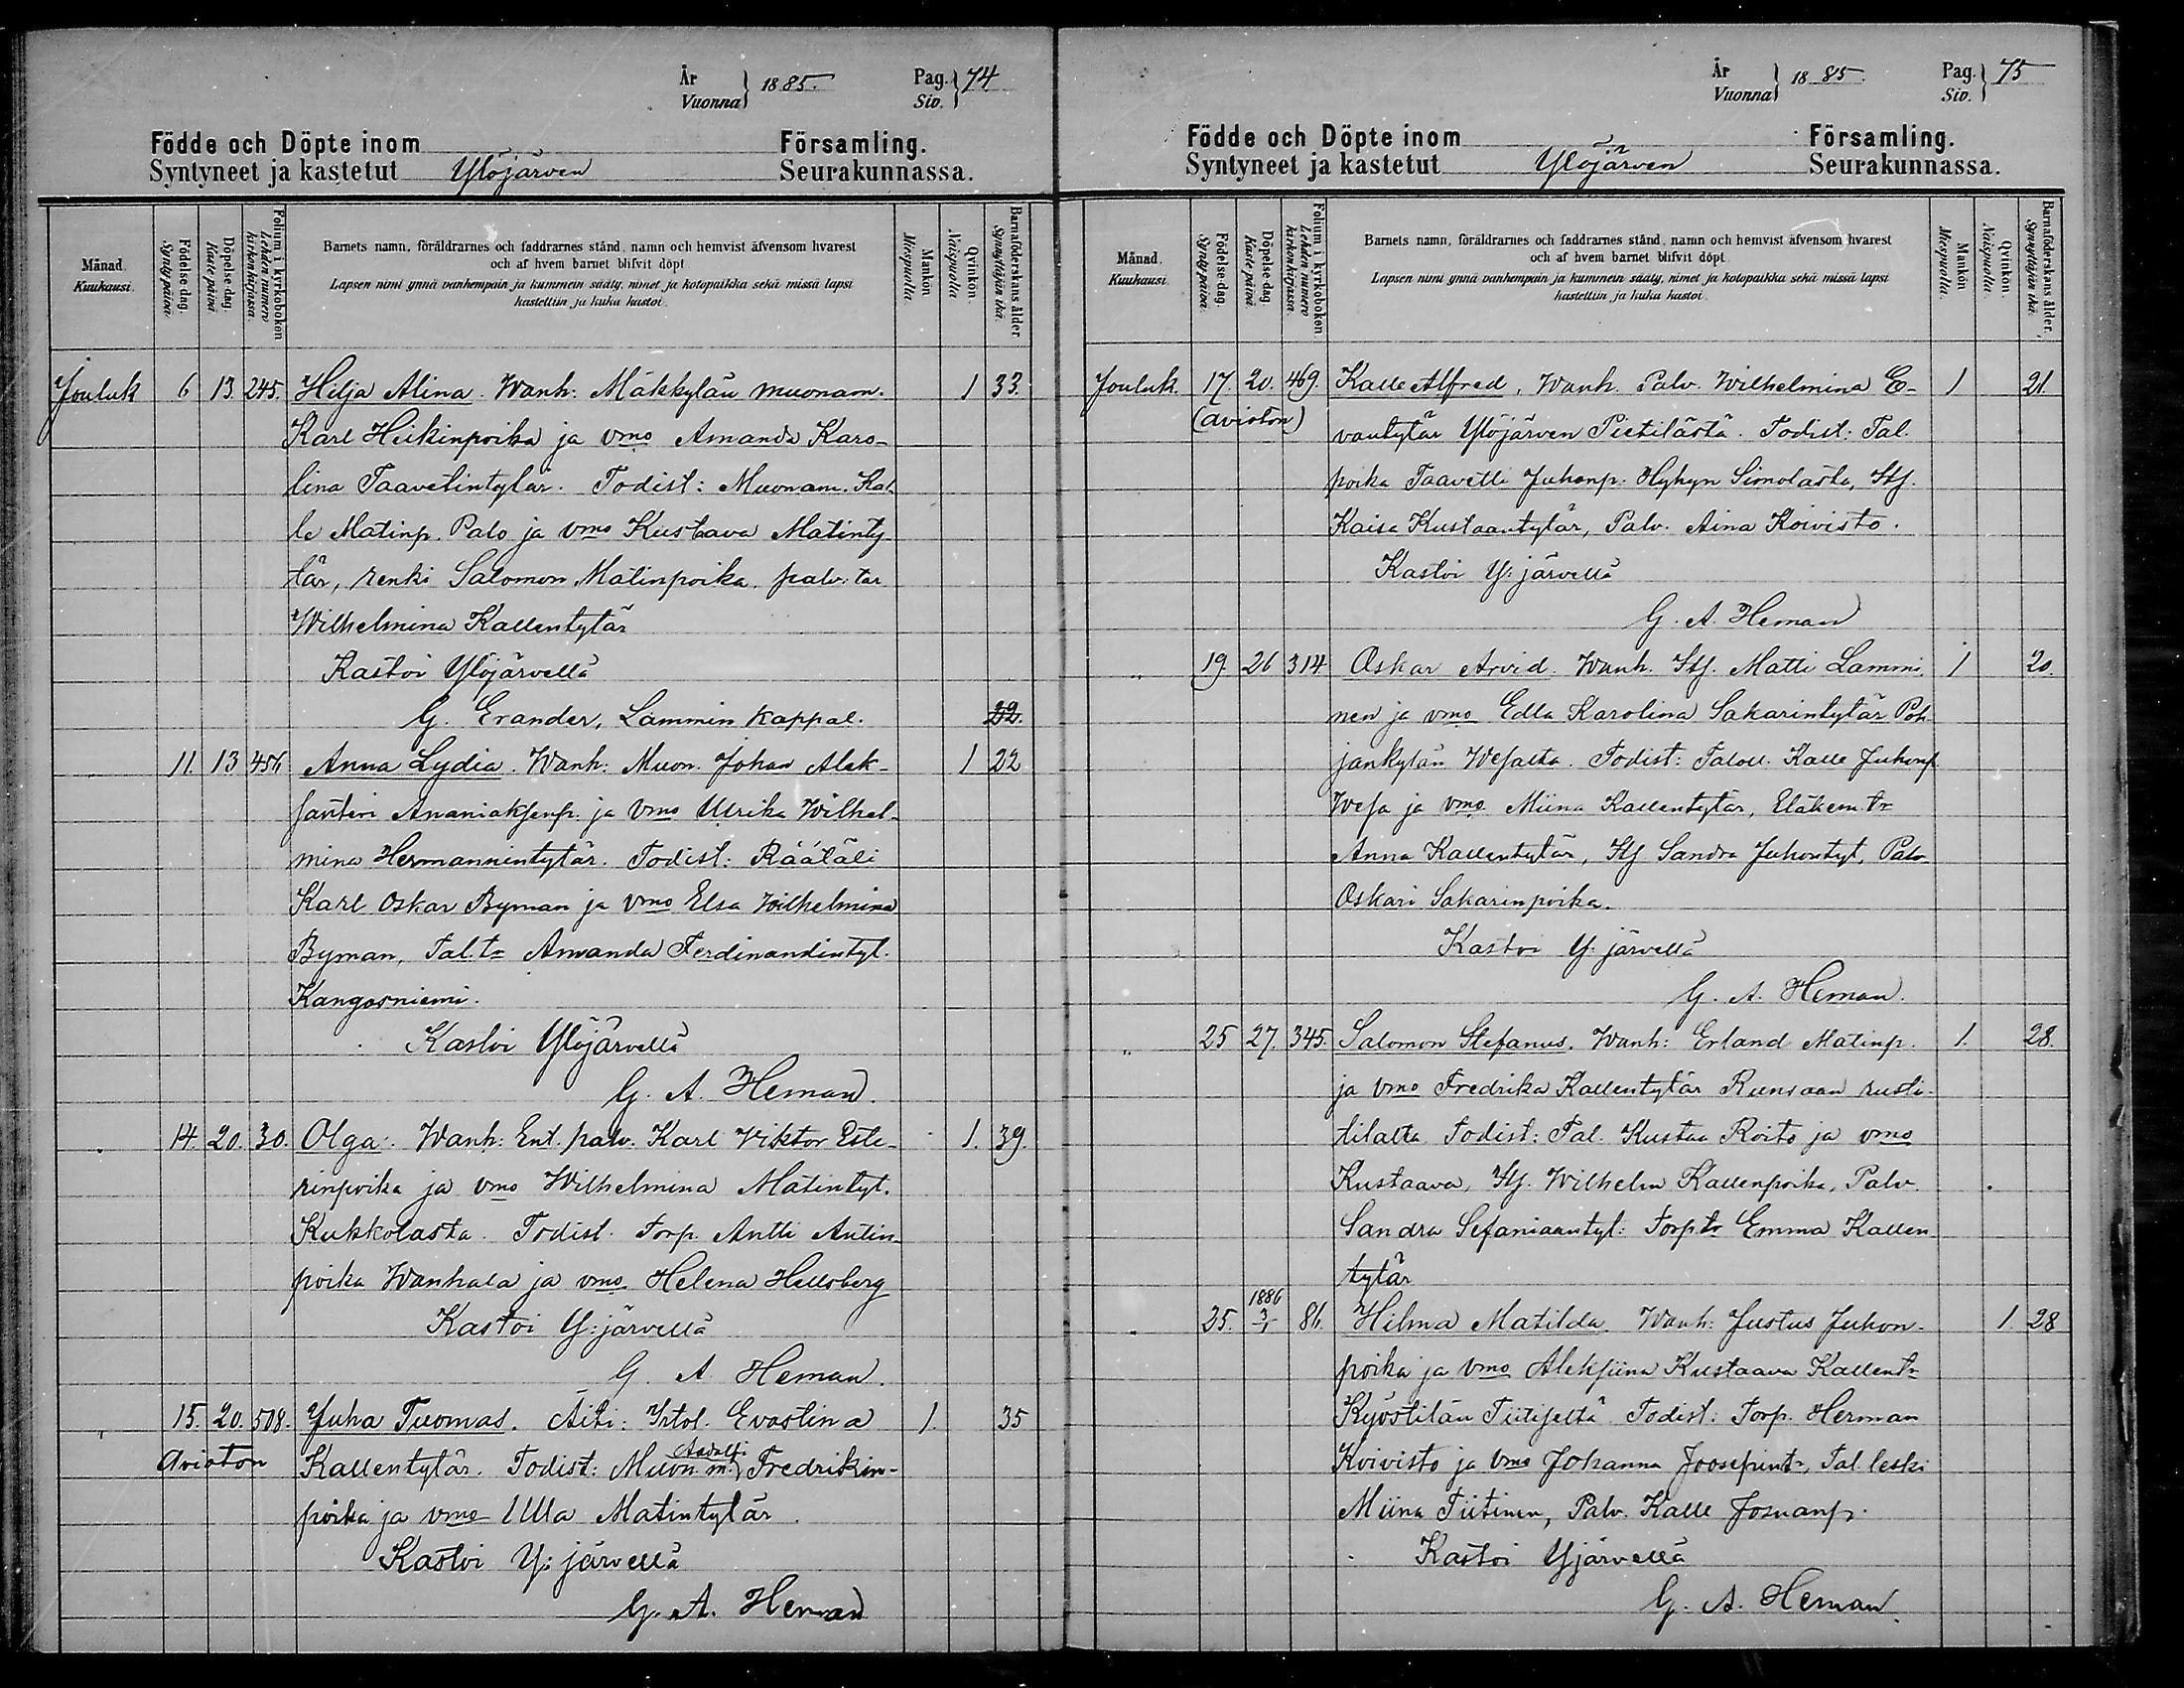 År
Vuonna } 1885.
Pag.
Siv. } 74
Födde och Döpte inom Församling.
Syntyneet ja kastetut Ylöjärven Seurakunnassa.
Månad.
Kuukausi.
Födelse-dag.
Synty-päivä.
Döpelse-dag.
Kaste-päivä.
Folium i kyrkobokon
Lehden numero
kirkonkirjassa.
Barnets namn, föräldrarnes och faddrarnes stånd, namn och hemvist äfvensom hvarest
och af hvem barnet blifvit döpt.
Lapsen nimi ynnä vanhempain ja kummein sääty, nimet ja kotopaikka sekä missä lapsi
kastettiin ja kuka kastoi.
Mankön.
Miespuolia.
Qvinkön.
Naispuolia.
Barnaföderskans ålder.
Synnyttäjän ikä.
Jouluk 6 13. 245. Hilja Alina. Wanh: Mäkkylän muonam. 1 33.
Karl Heikinpoika ja vmo Amanda Karo-
lina Taavetintytär. Todist: Muonam. Kal-
le Matinp. Palo ja vmo Kustava Matinty
tär, renki Salomon Matinpoika, palv:tar
Wilhelmina Kallentytär
Kastoi Ylöjärvellä
G. Erander, Lammin kappal. 22.
" 11. 13 456 Anna Lydia. Wanh: Muon. Johan Alek- 1 22
santeri Ananiaksenp. ja vmo Ulrika Wilhel-
mina Hermannintytär. Todist: Räätäli
Karl Oskar Byman ja vmo Elsa Wilhelmina
Byman, Tal.tr Amanda Ferdinandintyt.
Kangasniemi.
Kastoi Ylöjärvellä
G. A. Heman.
" 14. 20. 30. Olga. Wanh: Ent. palv. Karl Viktor Este- 1. 39.
rinpoika ja vmo Wilhelmina Matintyt.
Kukkolasta. Todist. Torp. Antti Antin-
poika Wanhala ja vmo Helena Hellsberg
Kastoi Y:järvellä
G. A. Heman.
" 15. 20. 508. Juha Tuomas. Äiti: Itstol. Evastina 1. 35
Avioton Kallentytär. Todist: Muon.m. Aadolfi Fredrikin-
poika ja vmo Ulla Matintytär.
Kastoi Y:järvellä
G. A. Heman
År
Vuonna } 1885.
Pag.
Siv. } 75
Födde och Döpte inom Församling.
Syntyneet ja kastetut Ylöjärven Seurakunnassa.
Månad.
Kuukausi.
Födelse-dag.
Synty-päivä.
Döpelse-dag.
Kaste-päivä.
Folium i kyrkobokon.
Lehden numero
kirkonkirjassa.
Barnets namn, föräldrarnes och faddrarnes stånd, namn och hemvist äfvensom hvarest
och af hvem barnet blifvit döpt.
Lapsen nimi ynnä vanhempain ja kummein sääty, nimet ja kotopaikka sekä missä lapsi
kastettiin ja kuka kastoi.
Mankön.
Miespuolia.
Qvinkön.
Naispuolia.
Barnaföderskans ålder.
Synnyttäjän ikä.
Jouluk. 17. 20. 469. Kalle Alfred. Wanh. Palv. Wilhelmina E- 1 21.
(avioton) vantytär Ylöjärven Pietilästä. Todist: Tal.
poika Taavetti Juhonp. Hyhyn Simolasta, Its.
Kaisa Kustaantytär, Palv. Aina Koivisto.
Kastoi Y:järvellä
G. A. Heman
" 19. 26 314. Oskar Arvid. Wanh. Its. Matti Lammi- 1 20.
nen ja vmo Edla Karolina Sakarintytär Poh-
jankylän Wesalta. Todist: Taloll. Kalle Juhonp
Wesa ja vmo Miina Kallentytär, Eläkem.tr
Anna Kallentytär, Its Sandra Juhontyt, Palv
Oskari Sakarinpoika.
Kastoi Y:järvellä
G. A. Heman.
" 25 27. 345. Salomon Stefanus. Wanh: Erland Matinp. 1. 28.
ja vmo Fredrika Kallentytär Runsaan rusti-
tilalta Todist: Tal. Kustaa Roito ja vmo
Kustaava, Its. Wilhelm Kallenpoika, Palv.
Sandra Sefaniaantyt: Torp.tr Emma Kallen
tytär
" 25. 1886 3/1 86. Hilma Matilda. Wanh: Justus Juhon- 1. 28
poika ja vmo Aleksiina Kustaava Kallentr
Kyöstilän Tiitiseltä Todist: Torp. Herman
Koivisto ja vmo Johanna Joosepintr, Tal. leski
Miina Tiitinen, Palv. Kalle Josuanp.
Kastoi Yjärvellä
G. A. Heman.